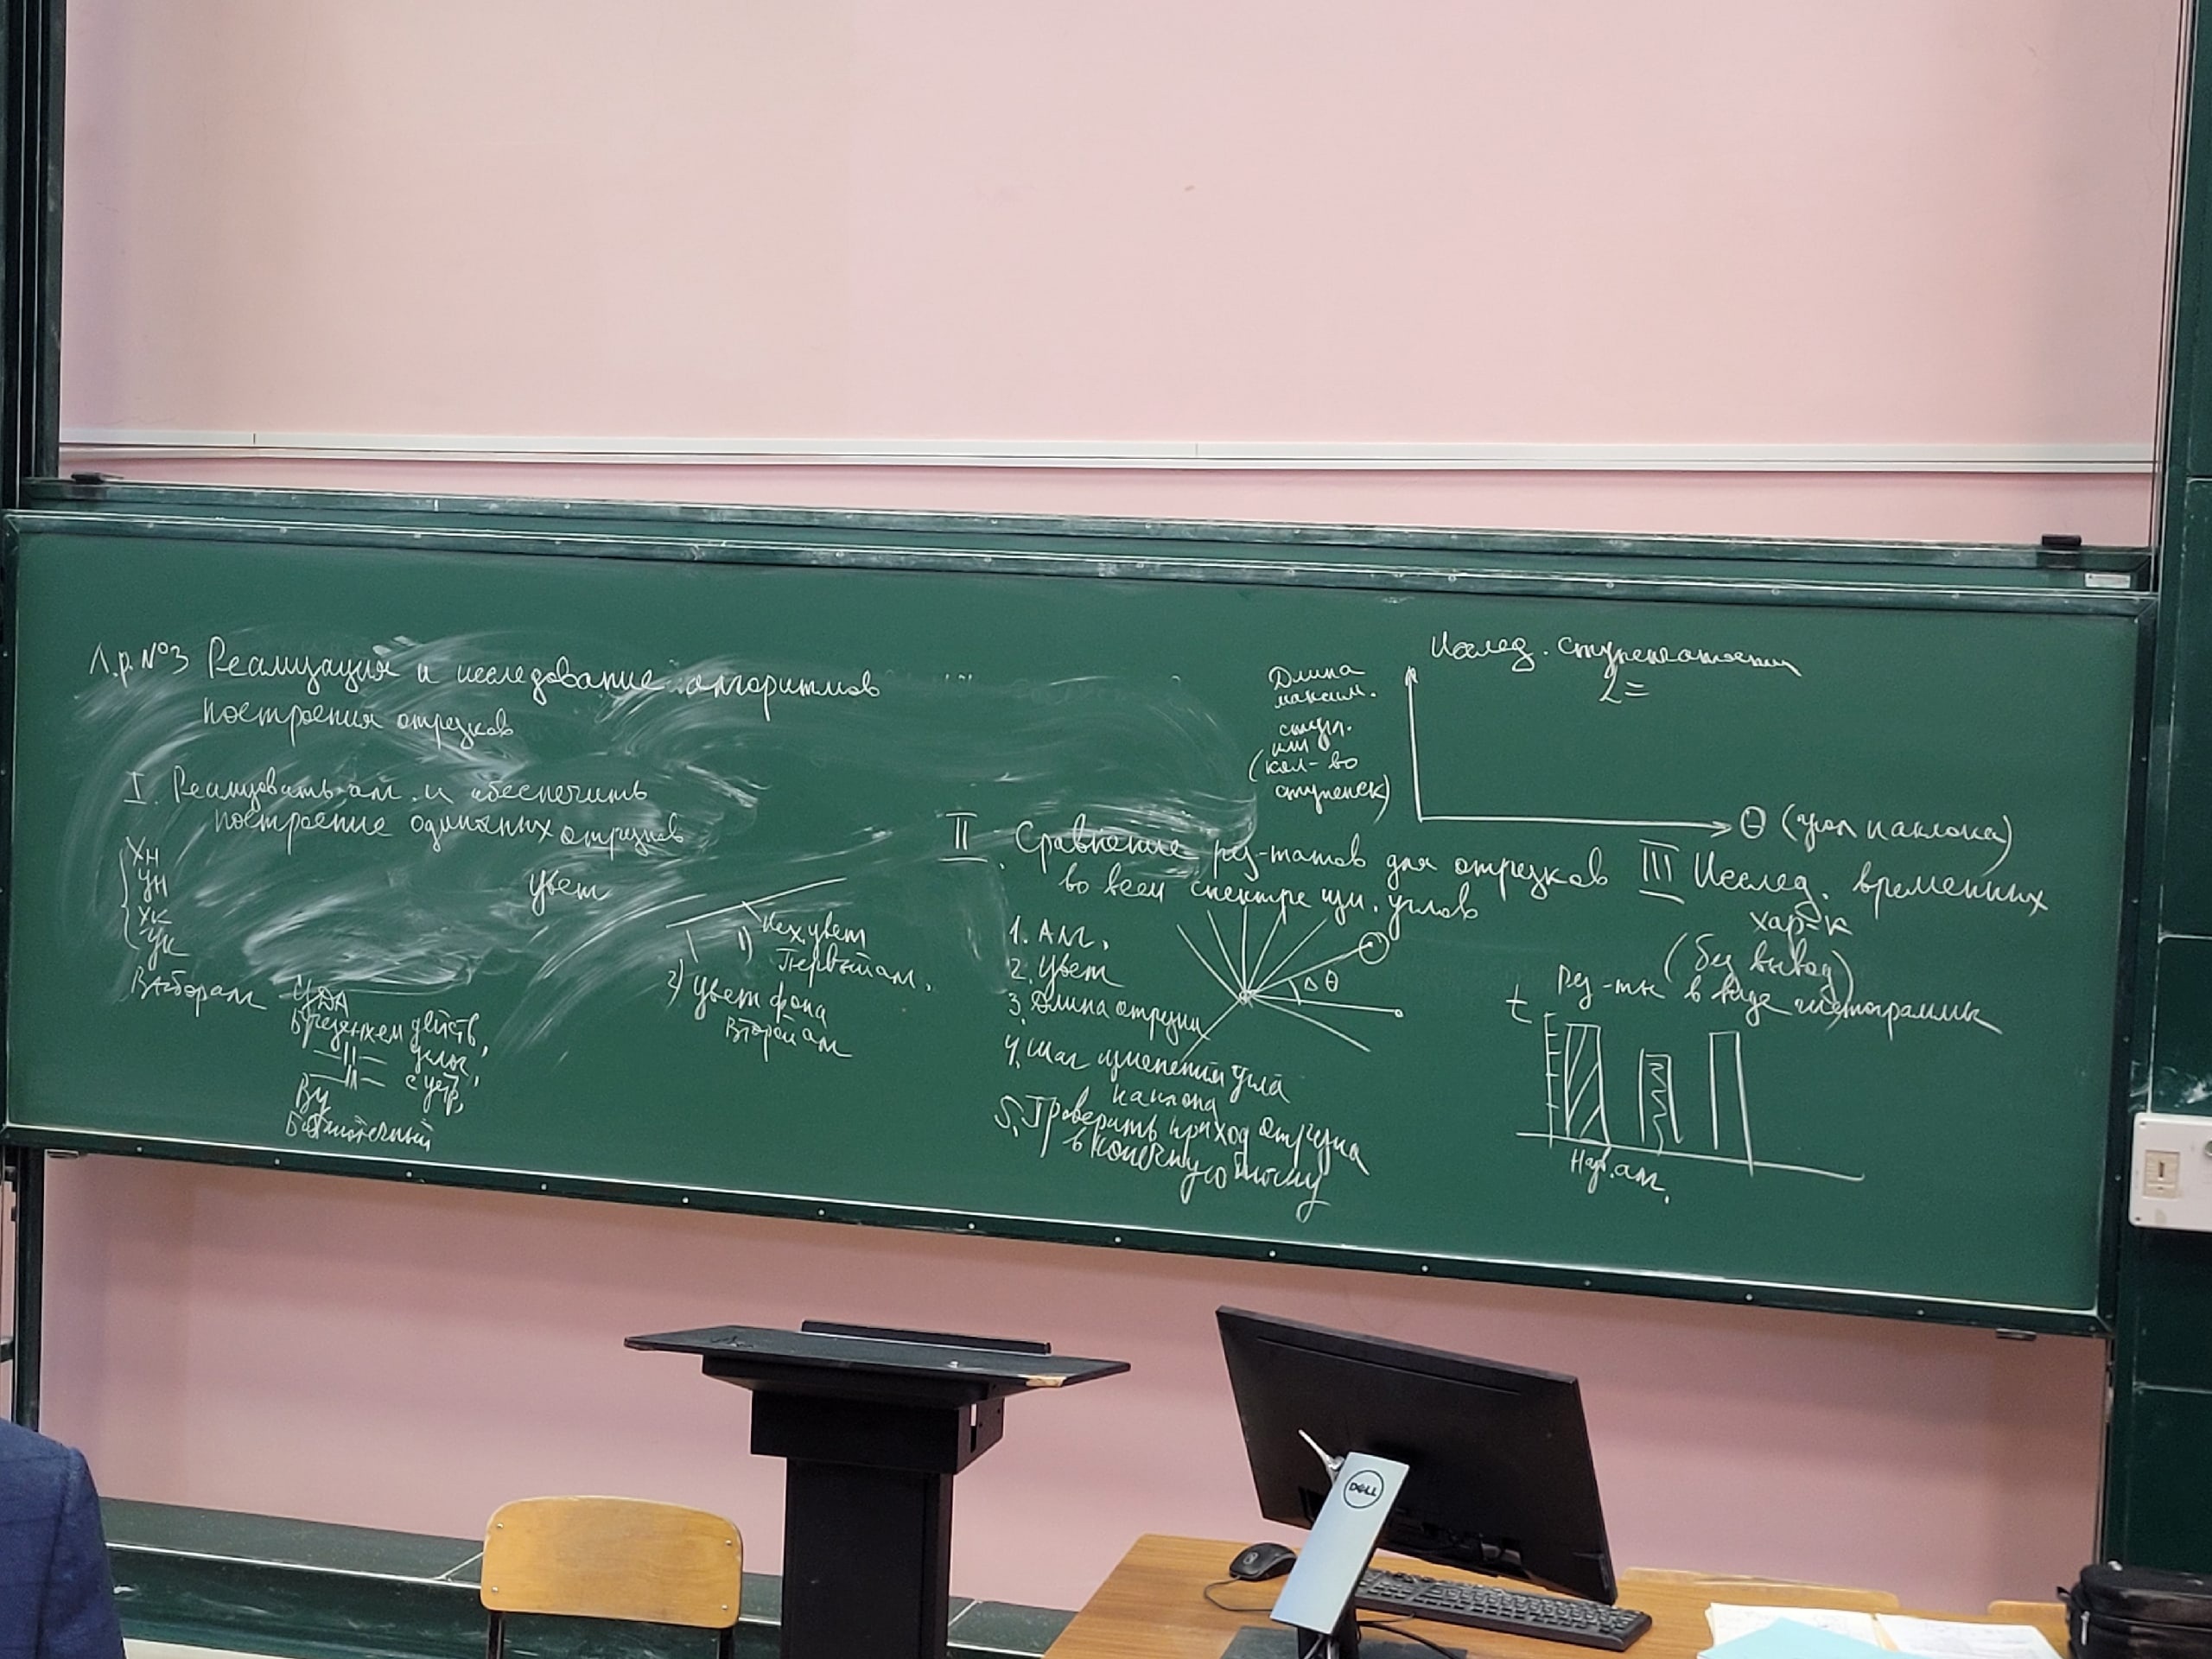 Л.р. №3 Реализация и исследование алгоритмов
построения отрезков
I. Реализовать алг. и обеспечить
построение одиночных отрезков
Xн
Yн
Xк
Yк
цвет
Выбор алг
ЦДА
Брезенхем действ.,
—||— целы,
—||— с устр.
Ву
Библиотечный
1) Нек. цвет
Первый алг.
2) цвет фона
Второй алг
II. Сравнение рез-татов для отрезков
во всем спектре изм. углов
1. Алг.
2. Цвет
3. Длина отрезка
4. Шаг изменения угла
наклона
5. Проверить приход отрезка
в конечную точку
Δθ
Исслед. ступенчатости
L =
Длина
максим.
ступ.
или
(кол-во
ступенек)
θ (угол наклона)
III Исслед. временных
хар-к
(без вывод)
Рез-ты в виде гистограммы
t
Наз. алг.
DELL